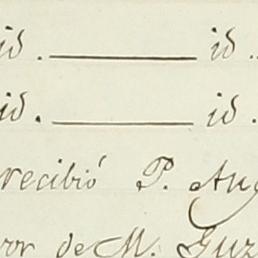 id. ——— id.
id. ——— id.
recibió P. Aug
por de M. Guz